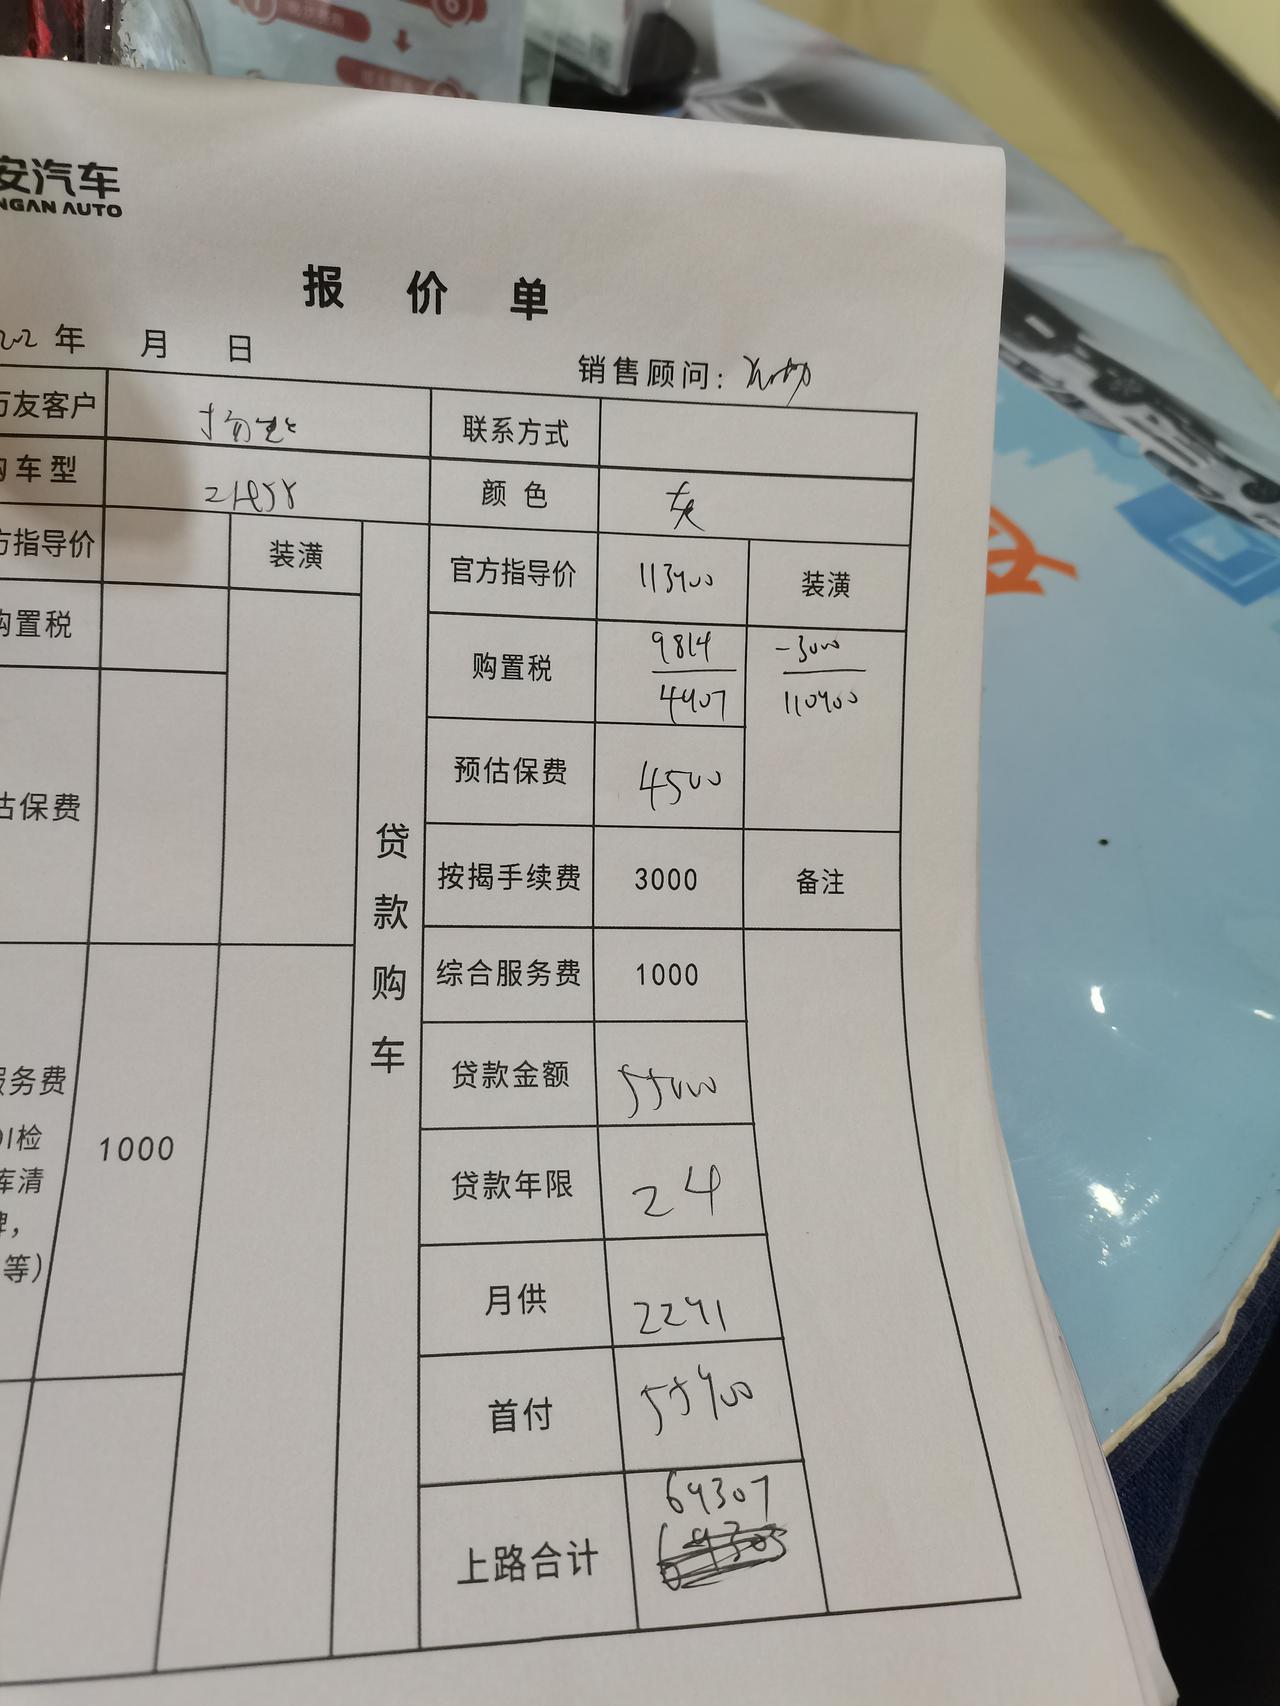 安汽车
NGAN AUTO
报价单
22年 月 日
销售顾问：
万友客户
联系方式
购车型
颜色 灰
方指导价 装潢
官方指导价 113900 装潢
购置税
购置税 9814 -3000
4907 110900
估保费
预估保费 4500
贷款购车
按揭手续费 3000 备注
综合服务费 1000
服务费
DI检
库清
牌，
等）
1000
贷款金额 55000
贷款年限 24
月供 2291
首付 55900
上路合计 69307